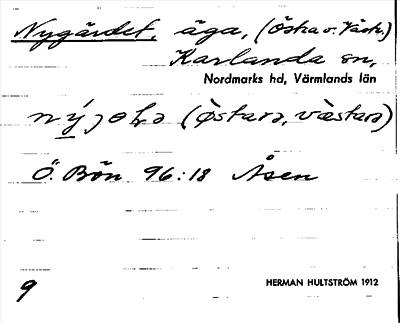 Nygärdet, äga, (Östra o. Västr.)
Karlanda sn,
Nordmarks hd, Värmlands län
(östarə, västarə)
Ö. Bön 96:18 Åsen
9
HERMAN HULTSTRÖM 1912